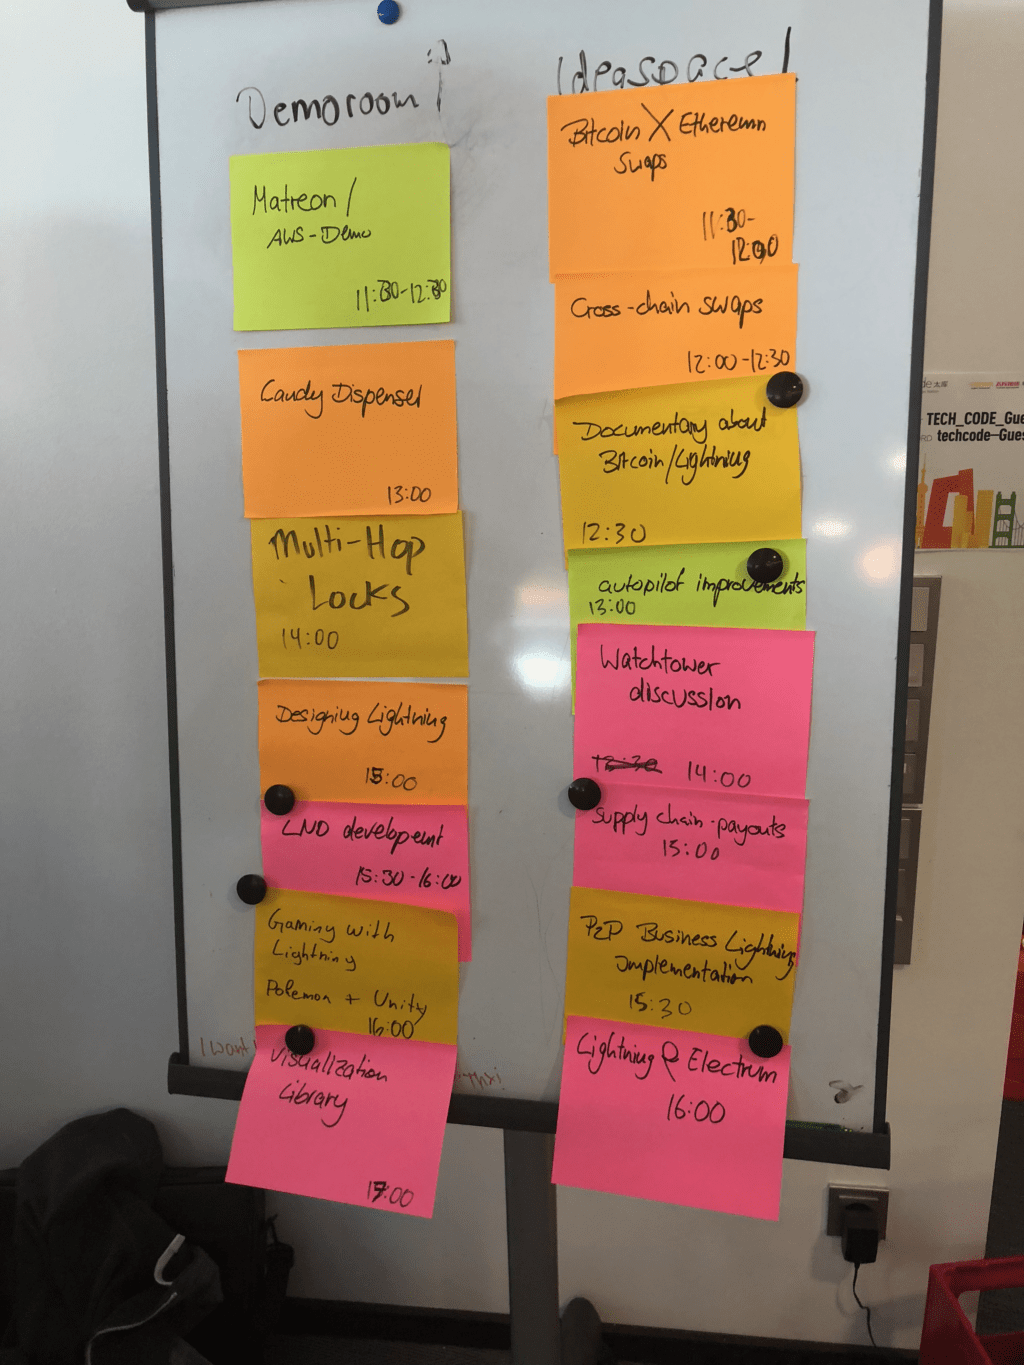 Demoroom
Matreon /
AWS-Demo
11:30-12:30
Candy Dispenser
13:00
Multi-Hop
Locks
14:00
Designing Lightning
15:00
LND developemt
15:30-16:00
Gaming with
Lightning
Pokemon + Unity
16:00
Visualization
Library
17:00
I want
Ideaspace!
Bitcoin X Ethereum
Swaps
11:30-
12:00
Cross-chain swaps
12:00-12:30
Documentary about
Bitcoin/Lightning
12:30
autopilot improvements
13:00
Watchtower
discussion
12:30 14:00
Supply chain-payouts
15:00
P2P Business Lightning
Implementation
15:30
Lightning @ Electrum
16:00
TECH_CODE_Gue
techcode-Gues